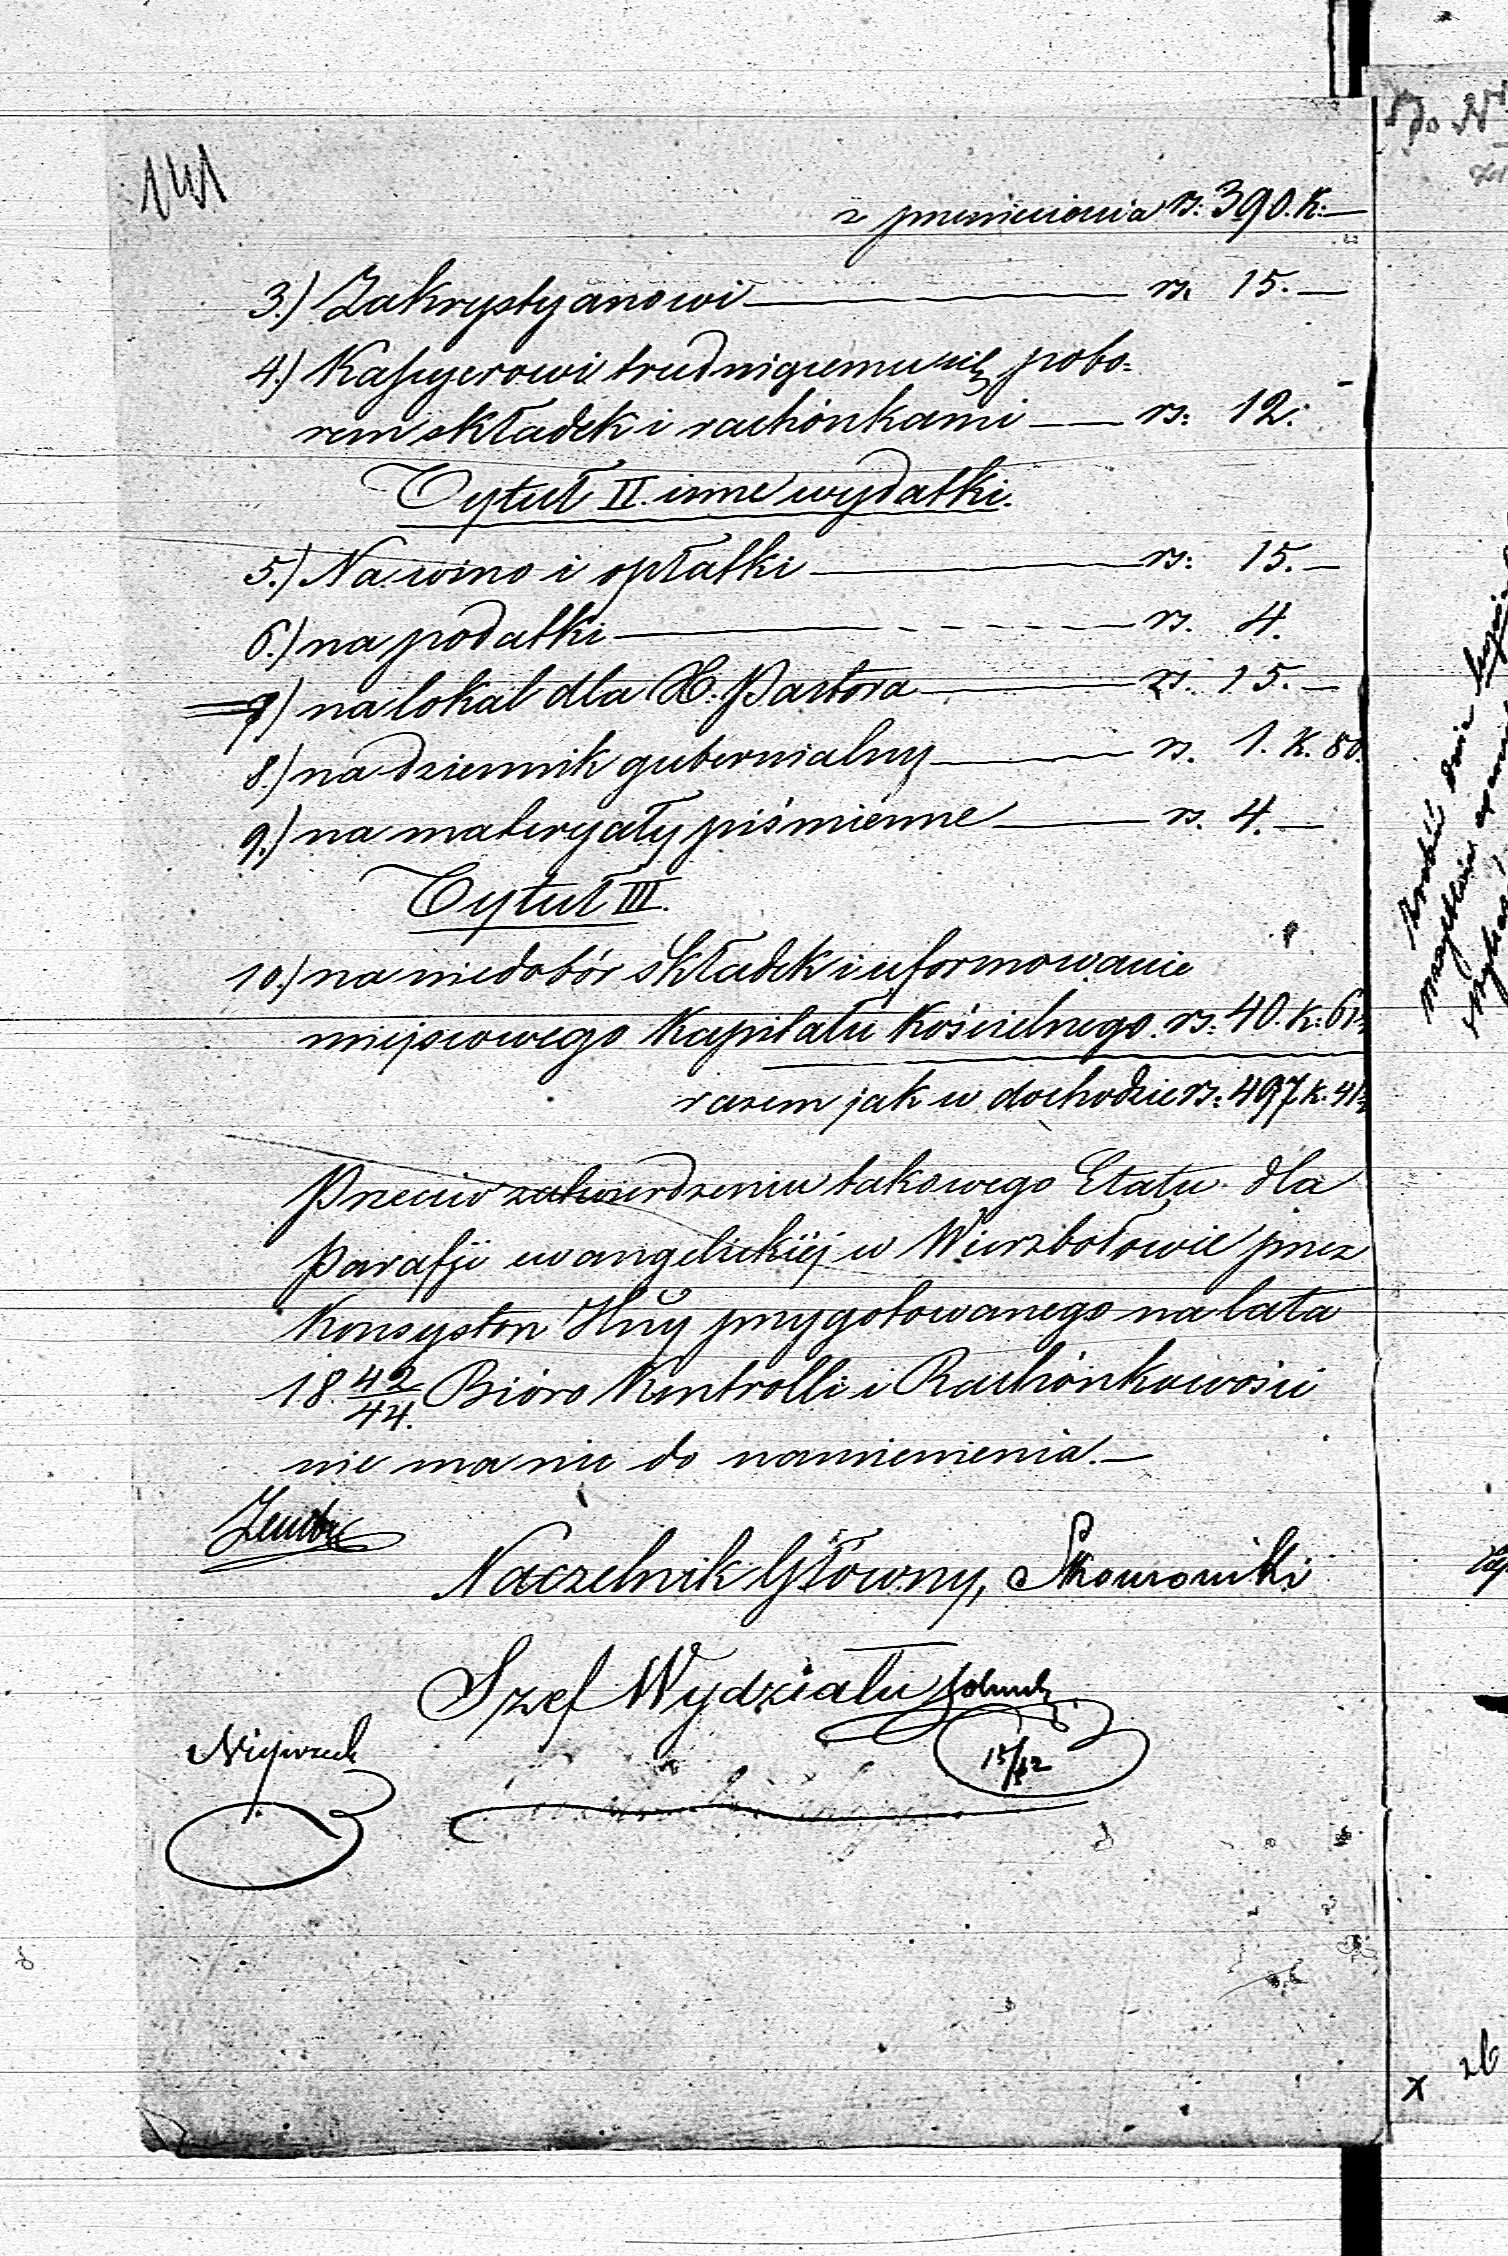 141
z przeniesienia rs: 390. k: —
3.) Zakrystyanowi — rs. 15. —
4.) Kassyerowi trudniącemu się pobo-
rem składek i rachónkami — rs: 12.
Tytuł II. inne wydatki.
5.) Na wino i opłatki — rs: 15. —
6.) na podatki — rs. 4.
7) na lokal dla X. Pastora — rs. 15. —
8.) na dziennik gubernialny — rs. 1. k. 80.
9.) na materyały piśmienne — rs. 4. —
Tytuł III.
10.) na niedobór składek i uformowanie
miejscowego Kapitału Kościelnego. rs: 40. k: 61
razem jak w dochodzie rs: 497. k. 41
Przeciw zatwierdzeniu takowego Etatu dla
Parafji ewangelickiéj w Wierzbołowie przez
Konsystorz Jlny przygotowanego na lata
18 42/44. Bióro Kontrolli i Rachónkowości
nie ma nic do namienienia. —
Naczelnik Główny, Skowroński
Szef Wydziału
15/12